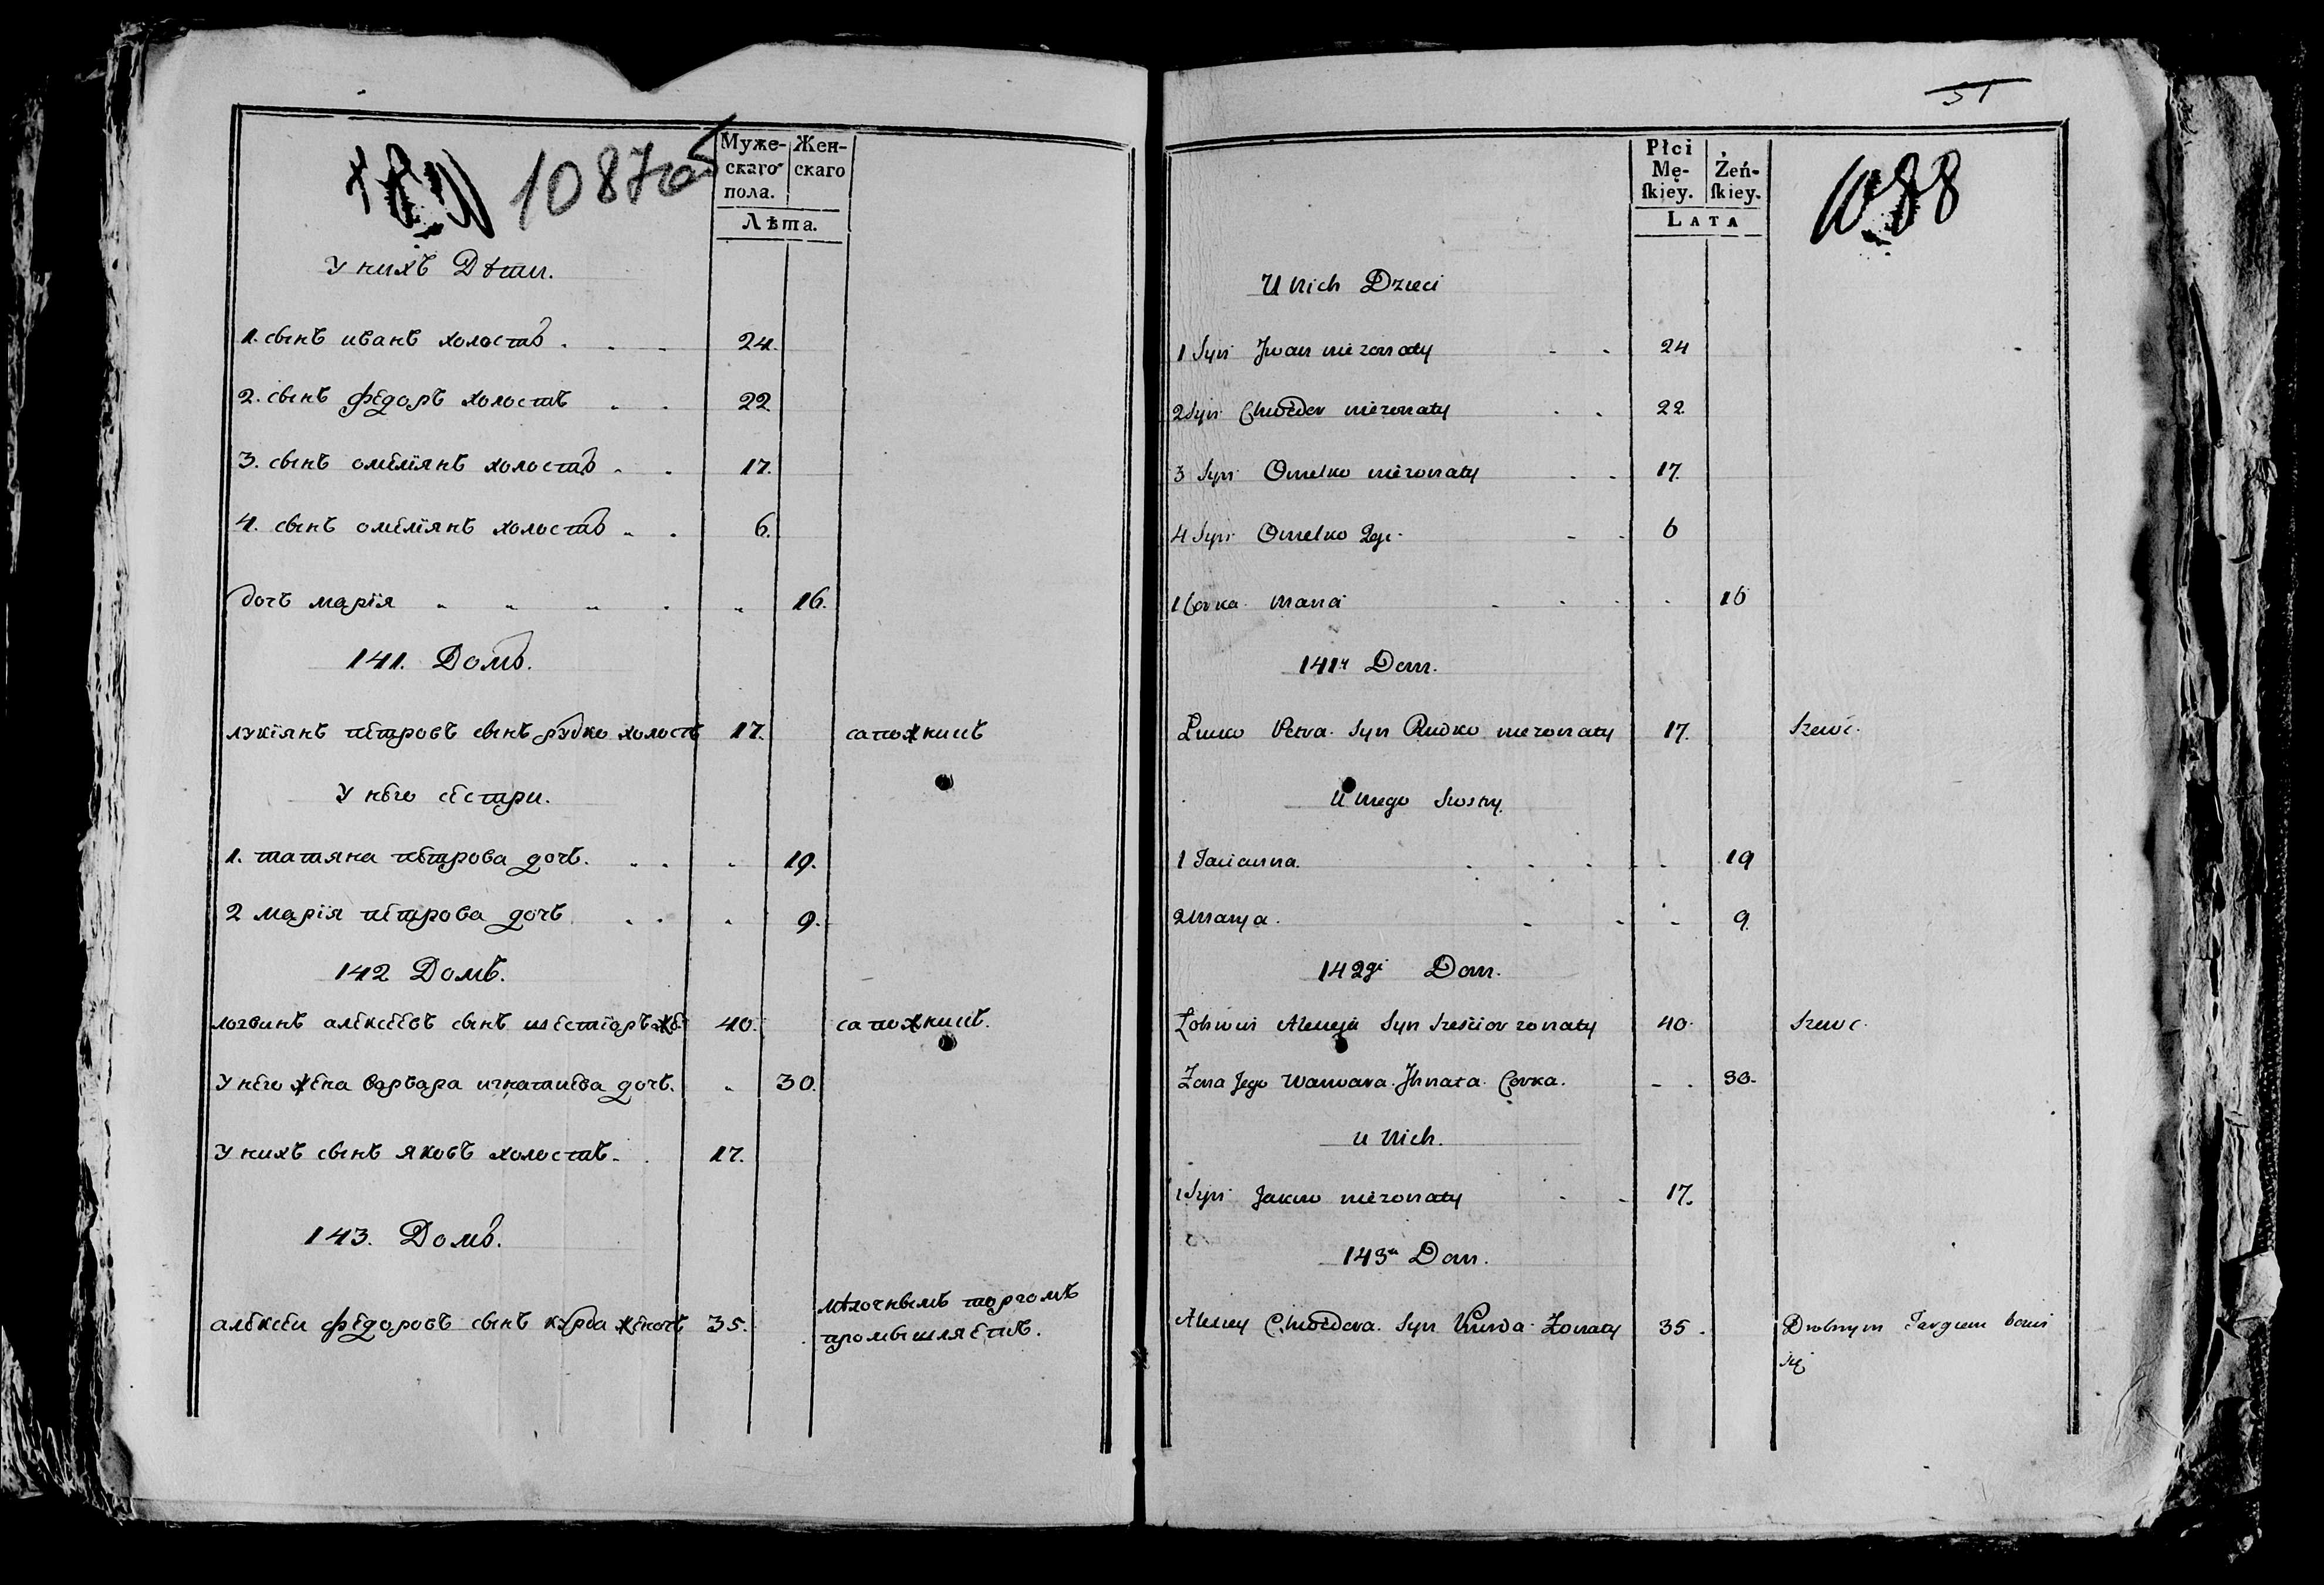 1087об
Муже-
скаго
пола.
Жен-
скаго
Лѣта.
У нихъ Дѣти.
1. сынъ иванъ холостъ . . . 24.
2. сынъ федоръ холостъ . . 22
3. сынъ омелїянъ холостъ . . 17.
4. сынъ омелїянъ холостъ . . 6.
дочь марїя . . . . . 16.
141. Домъ.
лукїянъ петровъ сынъ рудко холостъ 17. сапожникъ
У него сестри.
1. татяна петрова дочь. . . . 19.
2 марїя петрова дочь . . . 9.
142 Домъ.
логвинъ алексеевъ сынъ шестїоръ же 40. сапожникъ.
У него жена варвара игнатиева дочь. . 30.
У нихъ сынъ яковъ холостъ. . 17.
143. Домъ.
алексеи федоровъ сынъ курда женатъ 35. мѣлочнымъ торгомъ
промышляетъ.
51
Płci
Mę-
ſkiey.
Żeń-
ſkiey.
LATA
1088
U Nich Dzieci
1 Syn Jwan nieżonaty . . 24
2 Syn Chwedor nieżonaty . . 22
3 Syn Omelko nieżonaty . . 17.
4 Syn Omelko 2gi . . 6
1 Corka Maria . . . . 16
141y Dom.
Łucko Petra Syn Rudko nieżonaty 17. Szewc.
U niego Siostry.
1 Tacianna. . . . . . 19
2 Marya. . . . 9
142gi Dom.
Łohwin Alexeja Syn Szescior żonaty 40. Szewc.
Żona Jego Warwara Jhnata Corka. . . 30.
u Nich.
1 Syn Jakow nieżonaty . . 17.
143ci Dom.
Alexey Chwedora Syn Kurda Żonaty 35. Drobnym Targiem bawi
się